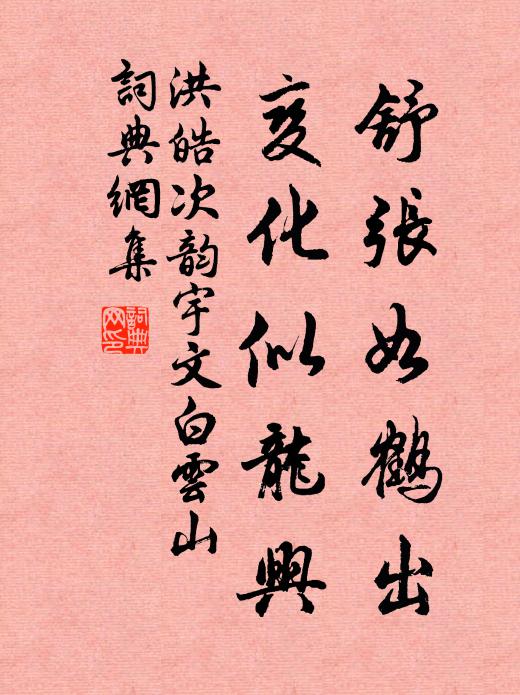 舒張如鶴出
變化似龍興
洪皓次韵宇文白雲山
詞典網集
詞典网印